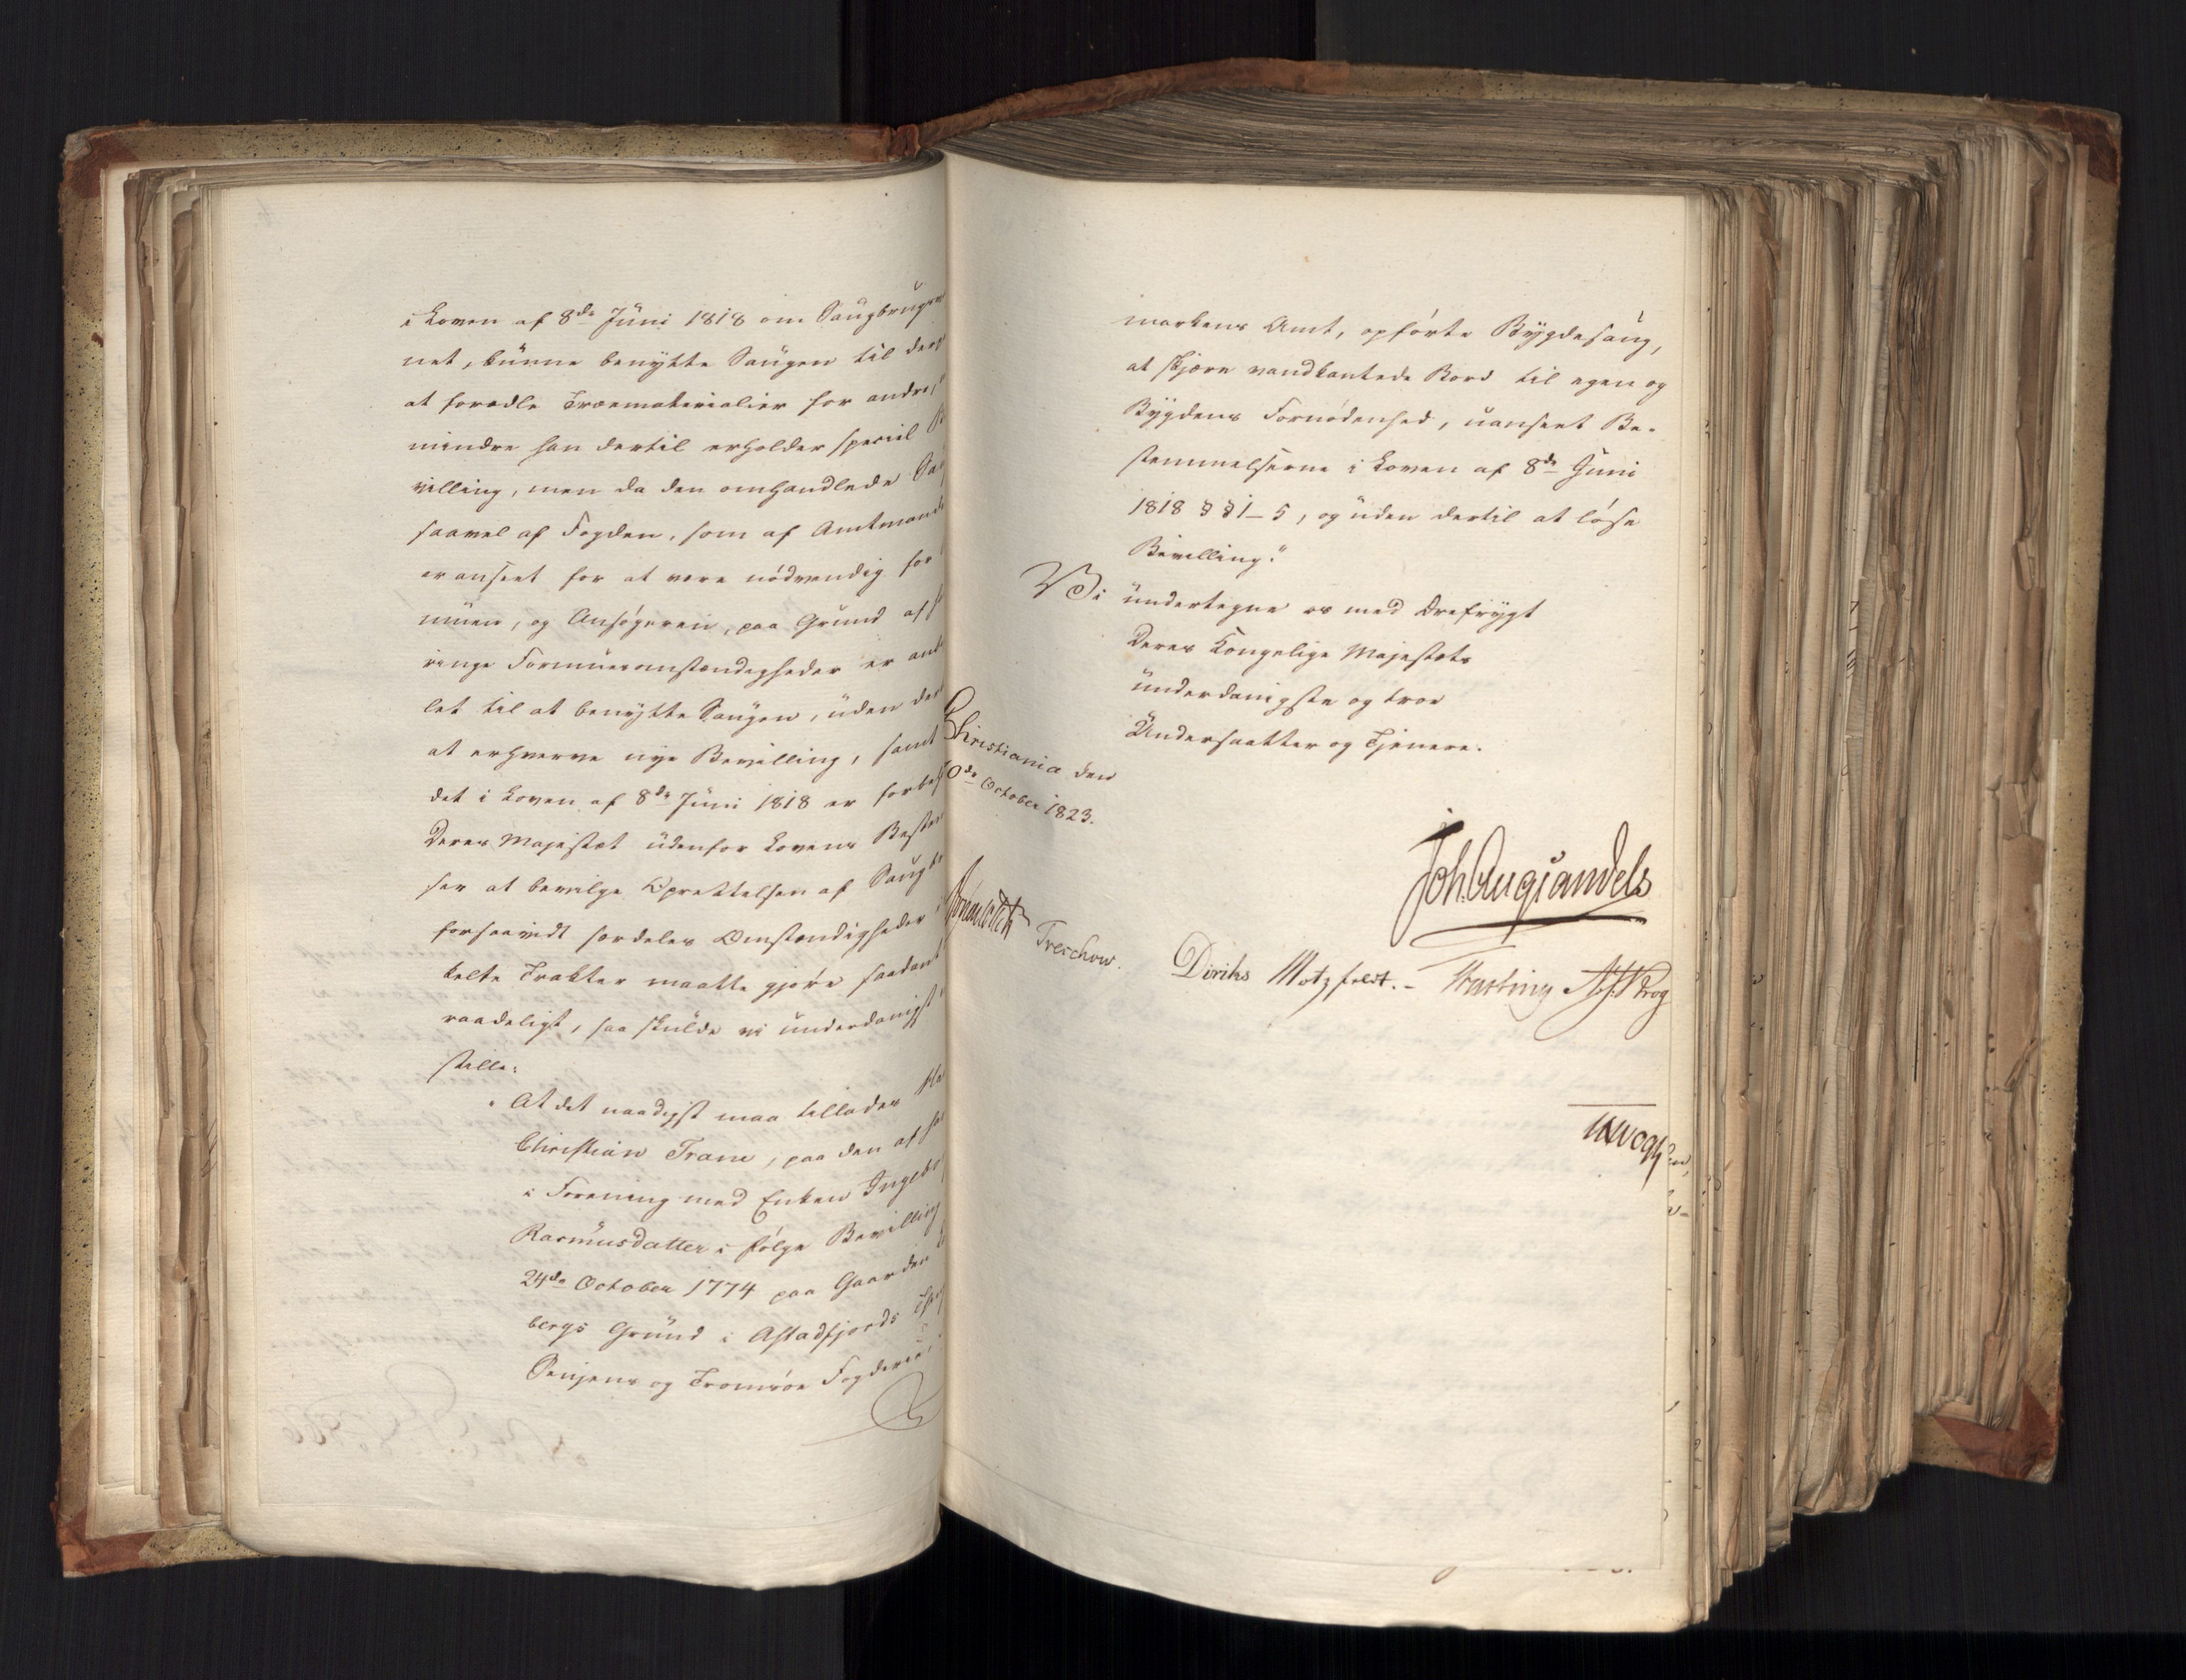 i Loven af 8de Juni 1818 om Saugbrugene
net, kunne benytte Saugen til derpaa
at foredle Træmaterialier for andre,
mindre han dertil erholder speciel Be
villing, men da den omhandlede Saug
saavel af Fogden, som af Amtmanden
er anseet for at være nødvendig for
muen, og Ansøgeren, paa Grund af
ringe Formuesomstændigheder er
let til at benytte Saugen, uden der
at erhverve nye Bevilling, samt
det i Loven af 8de Juni 1818 er
Deres Majestæt udenfor Lovens Bestem
ser at bevilge Oprettelsen af Saugbr
forsaavidt særdeles Omstændigheder
kelte Trakter maatte gjøre saadant
raadeligt, saa skulde vi underdanigst
stille:
"At det naadigst maa tillades
Christian Trane, paa den af
i Forening med Enken Ingeb
Rasmusdatter i følge Bevilling
24de October 1774 paa Gaarden
bergs Grund i Astadfjords
Senjens og Tromsøe Fogderie,
markens Amt, opførte Bygdesaug,
at skjære vandkantede Bord til egen og
Bygdens Fornødenhed, uanseet Be-
stemmelserne i Loven af 8de Juni
1818 §§ 1-5, og uden dertil at løse
Bevilling."
Vi undertegne os med Ærefrygt
Deres Kongelige Majestæts
underdanigste og troe
Undersaatter og Tjenere.
Christiania den
0de October 1823.
Joh. Aug. Sandels
Treschow.
Diriks Motzfeldt. - Fasting Krog